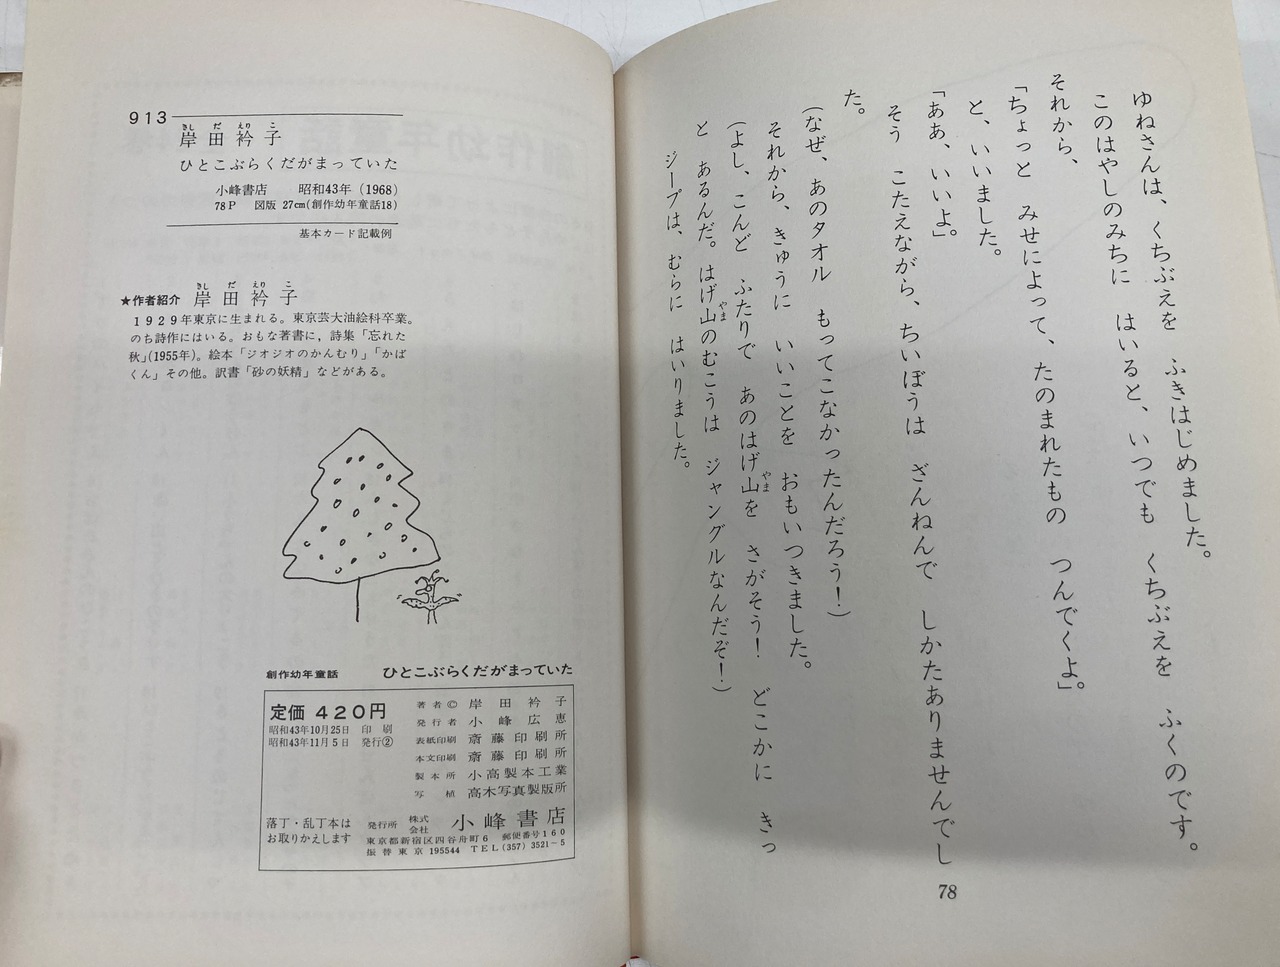 ゆねさんは、くちぶえを　ふきはじめました。
このはやしのみちに　はいると、いつでも　くちぶえを　ふくのです。
それから、
「ちょっと　みせによって、たのまれたもの　つんでくよ」。
と、いいました。
「ああ、いいよ」。
そう　こたえながら、ちいぼうは　ざんねんで　しかたありませんでし
た。
（なぜ、あのタオル　もってこなかったんだろう！）
それから、きゅうに　いいことを　おもいつきました。
（よし、こんど　ふたりで　あのはげ山を　さがそう！　どこかに　きっ
と　あるんだ。はげ山のむこうは　ジャングルなんだぞ！）
ジープは、むらに　はいりました。
やま
やま
78
913
きし　だ　えり　こ
岸田衿子
ひとこぶらくだがまっていた
小峰書店　昭和43年（1968）
78P　図版　27cm(創作幼年童話18)
基本カード記載例
きし　だ　えり　こ
★作者紹介　岸田衿子
1929年東京に生まれる。東京芸大油絵科卒業。
のち詩作にはいる。おもな著書に，詩集「忘れた
秋」(1955年)。絵本「ジオジオのかんむり」「かば
くん」その他。訳書「砂の妖精」などがある。
創作幼年童話　ひとこぶらくだがまっていた
定価 420円
昭和43年10月25日　印　刷
昭和43年11月5日　発行②
著者©　岸田衿子
発行者　小峰広恵
表紙印刷　斎藤印刷所
本文印刷　斎藤印刷所
製本所　小高製本工業
写植　高木写真製版所
落丁・乱丁本は
お取りかえします
発行所　株式会社　小峰書店
東京都新宿区四谷舟町6　郵便番号160
振替東京 195544　TEL(357)3521-5